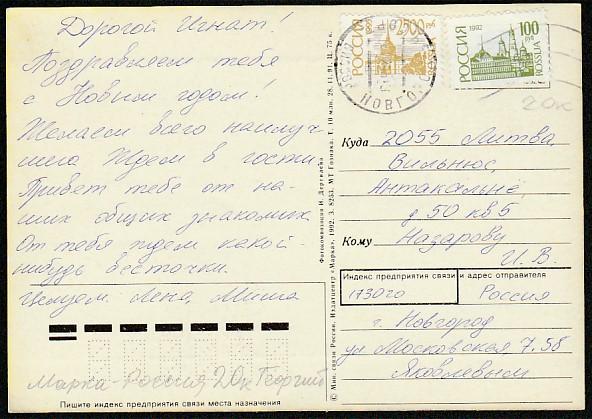 Дорогой Игнат!
Поздравляем тебя
с Новым годом.
Желаем всего наилуч-
шего. Ждем в гости.
Привет тебе от на-
ших общих знакомых.
От тебя ждем какой-
нибудь весточки.
Целуем. Лена, Миша
Марка-Россия 20к Георгий
Пишите индекс предприятия связи места назначения
© Мин. связи России. Издатцентр «Марка». 1992. З. 8253. МТ Гознака. Т. 10 млн. 28.11.91. Ц. 75 к.
Фотокомпозиция И. Дергилева
РОССИЯ 2500 руб
РОССИЯ 1992 100 руб ROSSIJA
НОВГО
20к
Куда 2055 Литва,
Вильнюс,
Антакальнё,
д 50 кв 5
Кому Назарову
И. В.
Индекс предприятия связи и адрес отправителя
173020 Россия
г. Новгород
ул Московская, 7.58
Яковлевым